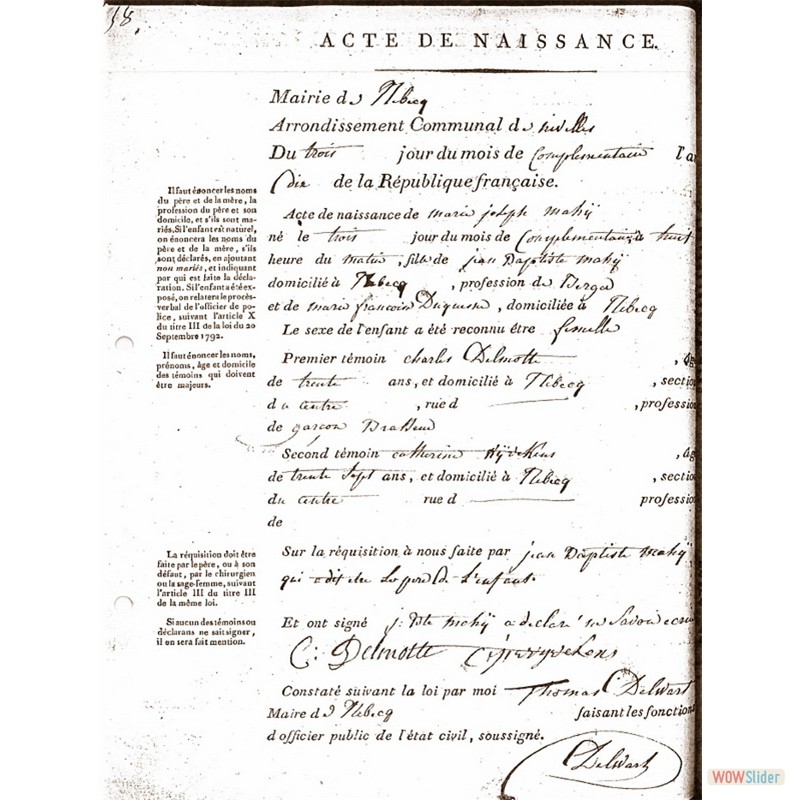 58.
ACTE DE NAISSANCE.
Mairie de Rebecq
Arrondissement Communal de nivelles
Du trois jour du mois de Complementaire l'an
dix de la République française.
Acte de naissance de marie joseph mahÿ
né le trois jour du mois de Complementaire à huit
heure du matin, fille de jean Baptiste mahÿ
domicilié à Rebecq, profession de Berger
et de marie francoise Duquesne, domiciliée à Rebecq
Le sexe de l'enfant a été reconnu être femelle
Premier témoin charles Delmotte, âg
de trente ans, et domicilié à Rebecq, section
du centre, rue d, profession
de garçon Brasseur
Second témoin catherine Hÿdekens, âg
de trente sept ans, et domicilié à Rebecq, section
du centre rue d profession
de
Sur la réquisition à nous faite par jean Baptiste mahÿ
qui a dit etre le pere de L'enfant.
Et ont signé j: Bte mahÿ a declaré ne Savoir ecrire
C: Delmotte
Constaté suivant la loi par moi Thomas Delwart
Maire de Rebecq faisant les fonctions
d'officier public de l'état civil, soussigné.
Delwart
Il faut énoncer les noms
du père et de la mère, la
profession du père et son
domicile, et s'ils sont ma-
riés. Si l'enfant est naturel,
on énoncera les noms du
père et de la mère, s'ils
sont déclarés, en ajoutant
non mariés, et indiquant
par qui est faite la décla-
ration. S'il enfant a été ex-
posé, on relatera le procès-
verbal de l'officier de po-
lice, suivant l'article X
du titre III de la loi du 20
Septembre 1792.
Il faut énoncer les noms,
prénoms, âge et domicile
des témoins qui doivent
être majeurs.
La réquisition doit être
faite par le père, ou à son
défaut, par le chirurgien
ou la sage-femme, suivant
l'article III du titre III
de la même loi.
Si aucun des témoins ou
déclarans ne sait signer,
il en sera fait mention.
WOWSlider